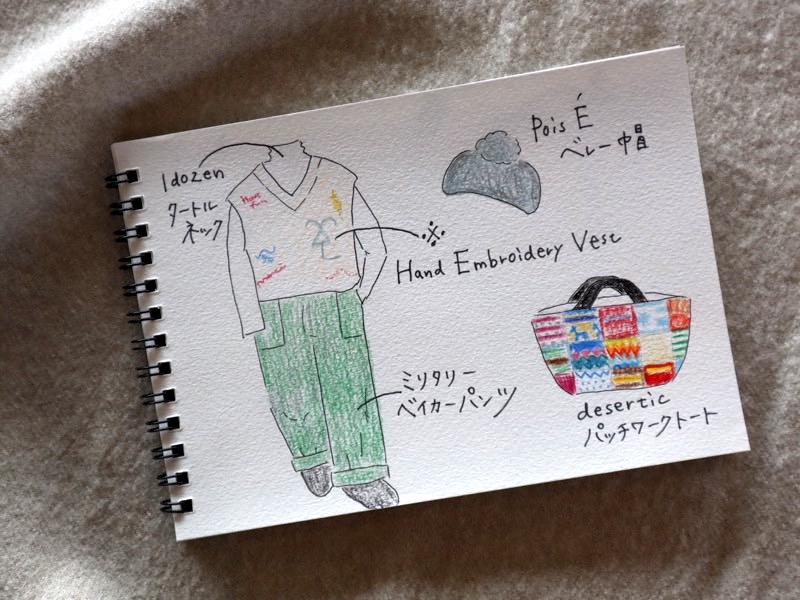 1dozen
タートル
ネック
Pois É
ベレー帽
※
Hand Embroidery Vest
ミリタリー
ベイカーパンツ
desertic
パッチワークトート